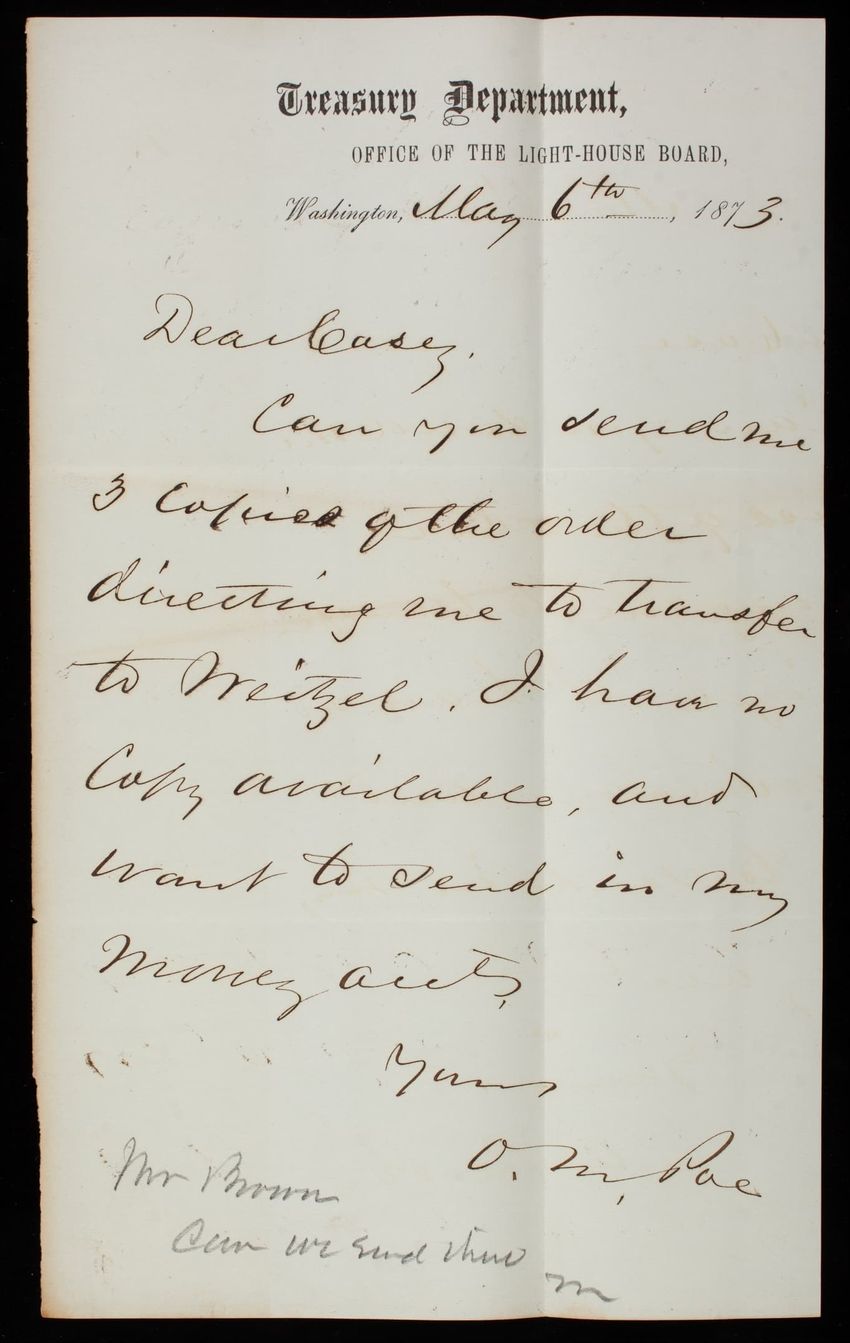 Treasury Department,
OFFICE OF THE LIGHT-HOUSE BOARD,
Washington, May 6th, 1873.
Dear Casey.
Can you send me
3 Copies of the order
directing me to transfer
to Weitzel. I have no
Copy available, and
want to send in my
Money accts.
Yours
O. M. Poe
Mr Brown
Can we send